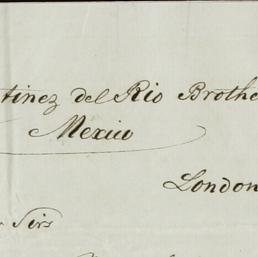 tinez del Rio Brothe
Mexico
London
Sirs